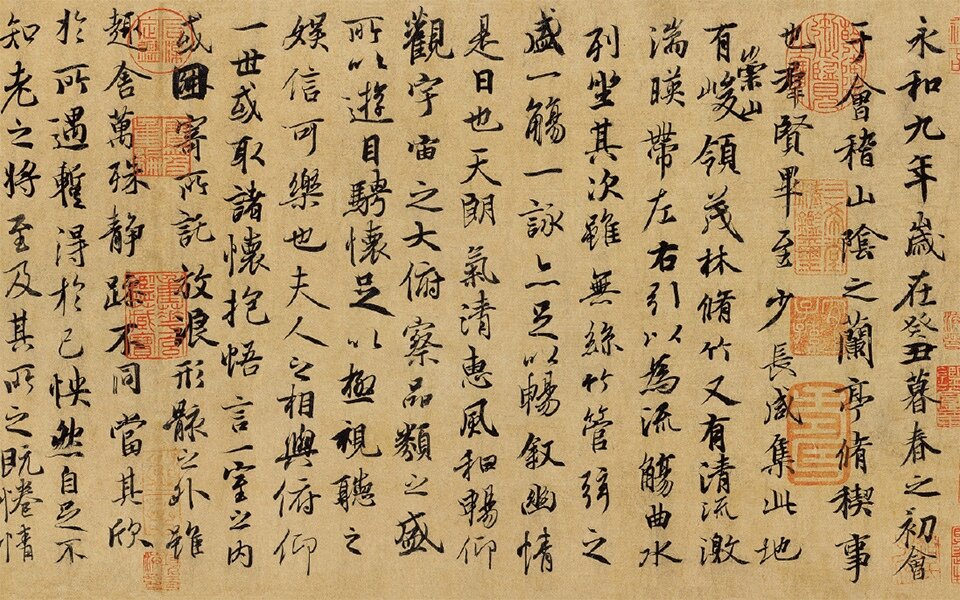 永和九年歲在癸丑暮春之初會
于會稽山陰之蘭亭脩稧事
也羣賢畢至少長咸集此地
有崇山峻領茂林脩竹又有清流激
湍暎帶左右引以為流觴曲水
列坐其次雖無絲竹管弦之
盛一觴一詠亦足以暢叙幽情
是日也天朗氣清惠風和暢仰
觀宇宙之大俯察品類之盛
所以遊目騁懷足以極視聽之
娛信可樂也夫人之相與俯仰
一世或取諸懷抱悟言一室之內
或因寄所託放浪形骸之外雖
趣舍萬殊静躁不同當其欣
於所遇蹔得於己怏然自足不
知老之將至及其所之既惓情